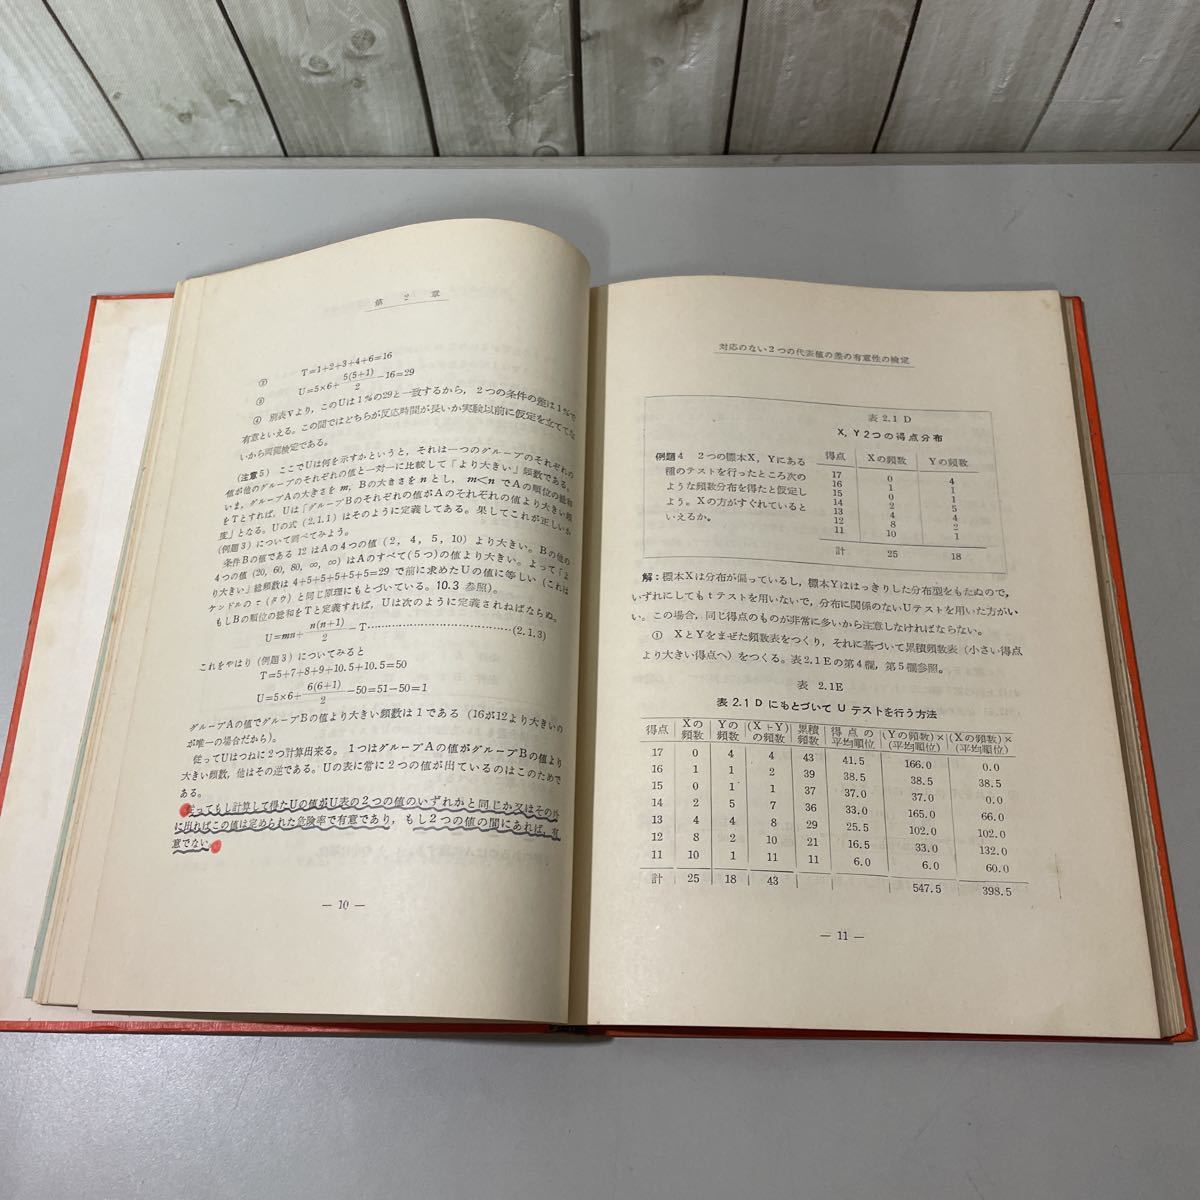 第 2 章
② T=1+2+3+4+6=16
③ U=5×6+5(5+1)/2−16=29
④ 別表Vより，このUは1%の29と一致するから，2つの条件の差は1%で
有意といえる。この間ではどちらが反応時間が長いか実験以前に仮定を立ててな
いから両側検定である。
(注意5) ここでUは何を示すかというと，それは一つのグループのそれぞれの
値が他のグループのそれぞれの値と一対一に比較して「より大きい」頻数である。
いま，グループAの大きさを m，Bの大きさを n とし， m<n でAの順位の総和
をTとすれば，Uは「グループBのそれぞれの値がAのそれぞれの値より大きい頻
度」となる。Uの式 (2.1.1) はそのように定義してある。果してこれが正しいか
(例題3) について調べてみよう。
条件Bの値である 12 はAの4つの値 (2, 4, 5, 10) より大きい。Bの他の
4つの値 (20, 60, 80, ∞, ∞) はAのすべて(5つ)の値より大きい。よって「よ
り大きい」総頻数は 4+5+5+5+5+5=29 で前に求めたUの値に等しい (これは
ケンドルの τ (タウ) と同じ原理にもとづいている。10.3 参照)。
もしBの順位の総和をTと定義すれば，Uは次のように定義されねばならぬ。
U=mn+n(n+1)/2−T……………………………(2.1.3)
これをやはり (例題3) についてみると
T=5+7+8+9+10.5+10.5=50
U=5×6+6(6+1)/2−50=51−50=1
グループAの値でグループBの値より大きい頻度は1である (16が12より大きいの
が唯一の場合だから)。
従ってUはつねに2つ計算出来る。1つはグループAの値がグループBの値より
大きい頻数，他はその逆である。Uの表に常に2つの値が出ているのはこのためで
ある。
従ってもし計算して得たUの値がU表の2つの値のいずれかと同じか又はその外
に出ればこの値は定められた危険率で有意であり，もし2つの値の間にあれば，有
意でない。
― 10 ―
対応のない2つの代表値の差の有意性の検定
例題4 2つの標本X，Yにある
種のテストを行ったところ次の
ような頻数分布を得たと仮定し
よう。Xの方がすぐれていると
いえるか。
表 2.1 D
X，Y 2つの得点分布
得点 Xの頻数 Yの頻数
17 0 4
16 1 1
15 0 1
14 2 5
13 4 4
12 8 2
11 10 1
計 25 18
解：標本Xは分布が偏っているし，標本Yははっきりした分布型をもたぬので，
いずれにしても t テストを用いないで，分布に関係のないUテストを用いた方がい
い。この場合，同じ得点のものが非常に多いから注意しなければならない。
① XとYをまぜた頻数表をつくり，それに基づいて累積頻数表 (小さい得点
より大きい得点へ) をつくる。表2.1Eの第4欄，第5欄参照。
表 2.1E
表 2.1 D にもとづいて U テストを行う方法
得点 Xの頻数 Yの頻数 (X+Y)の頻数 累積頻数 得点の平均順位 (Yの頻数)×(平均順位) (Xの頻数)×(平均順位)
17 0 4 4 43 41.5 166.0 0.0
16 1 1 2 39 38.5 38.5 38.5
15 0 1 1 37 37.0 37.0 0.0
14 2 5 7 36 33.0 165.0 66.0
13 4 4 8 29 25.5 102.0 102.0
12 8 2 10 21 16.5 33.0 132.0
11 10 1 11 11 6.0 6.0 60.0
計 25 18 43 547.5 398.5
― 11 ―